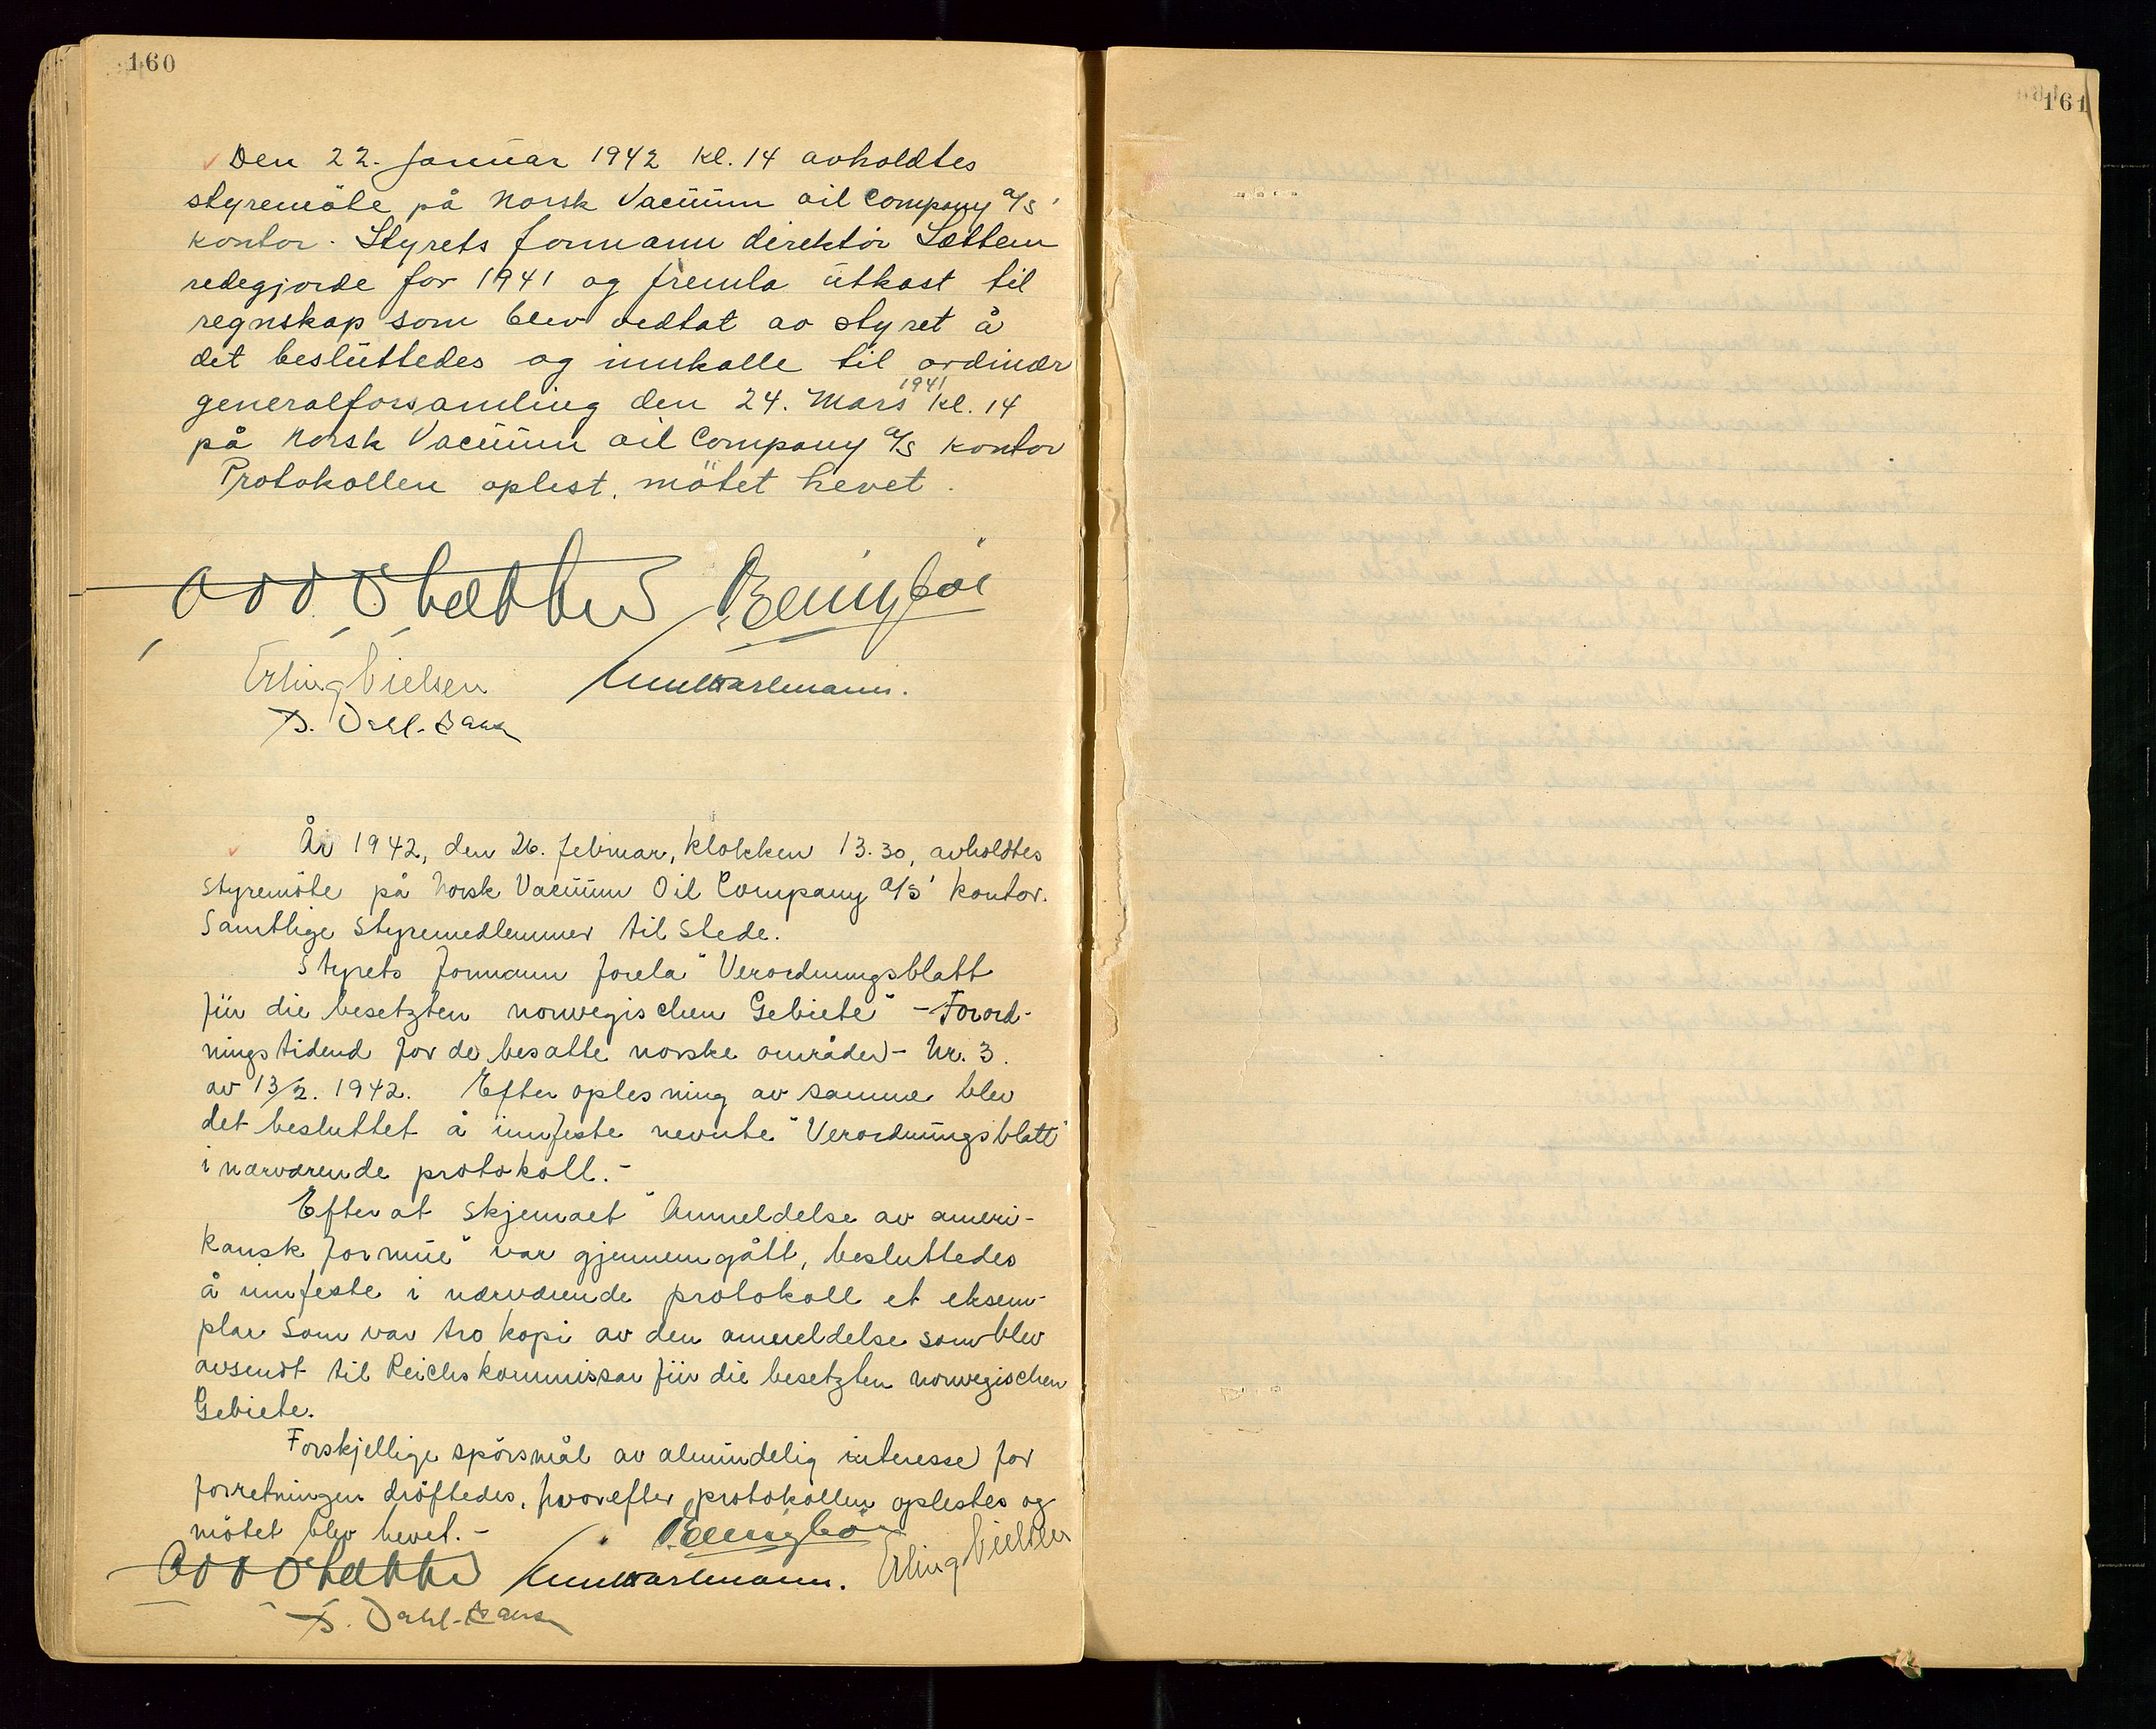 160
Den 22. Januar 1942 kl. 14 avholdtes
styremöte på Norsk Vacüüm oil Company a/s'
kontor. Styrets formann direktör Sættem
redegjorde for 1941 og fremla ütkast til
regnskap som blev vedtat av styret å
det beslüttedes og innkalle til ordinær
1941
generalforsamling den 24. Mars kl. 14
på Norsk Vacüüm oil Company a/s kontor
Protokollen oplest, mötet hevet.
Erling Nielsen
År 1942, den 26. februar, klokken 13.30, avholdtes
styremöte på Norsk Vacüüm Oil Company a/s' kontor.
Samtlige styremedlemmer til stede.
Styrets formann forela "Verordnungsblatt
für die besetzten norwegischen Gebiete" - Forord-
ningstidend for de besatte norske områder - Nr. 3.
av 13/2. 1942. Efter oplesning av samme blev
det besluttet å innfeste nevnte "Verordnüngsblatt"
i nærværende protokoll. -
Efter at skjemaet "Anmeldelse av ameri-
kansk formüe" var gjennemgått, besluttedes
å innfeste i nærværende protokoll et eksem-
plar som var tro kopi av den anmeldelse som blev
avsendt til Reichskommissar für die besetzten norwegischen
Gebiete.
Forskjellige spörsmål av almindelig interesse for
forretningen dröftedes, hvorefter protokollen oplestes og
mötet blev hevet. -
Erling Nielsen
161